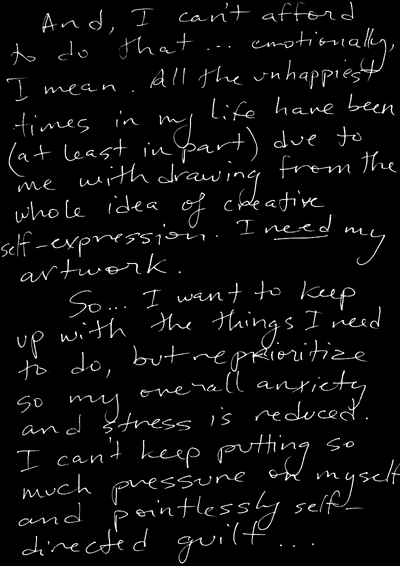 And, I can't afford
to do that... emotionally,
I mean. All the unhappiest
times in my life have been
(at least in part) due to
me withdrawing from the
whole idea of creative
self-expression. I need my
artwork.
So... I want to keep
up with the things I need
to do, but reprioritize
so my overall anxiety
and stress is reduced.
I can't keep putting so
much pressure on myself
and pointlessly self-
directed guilt...